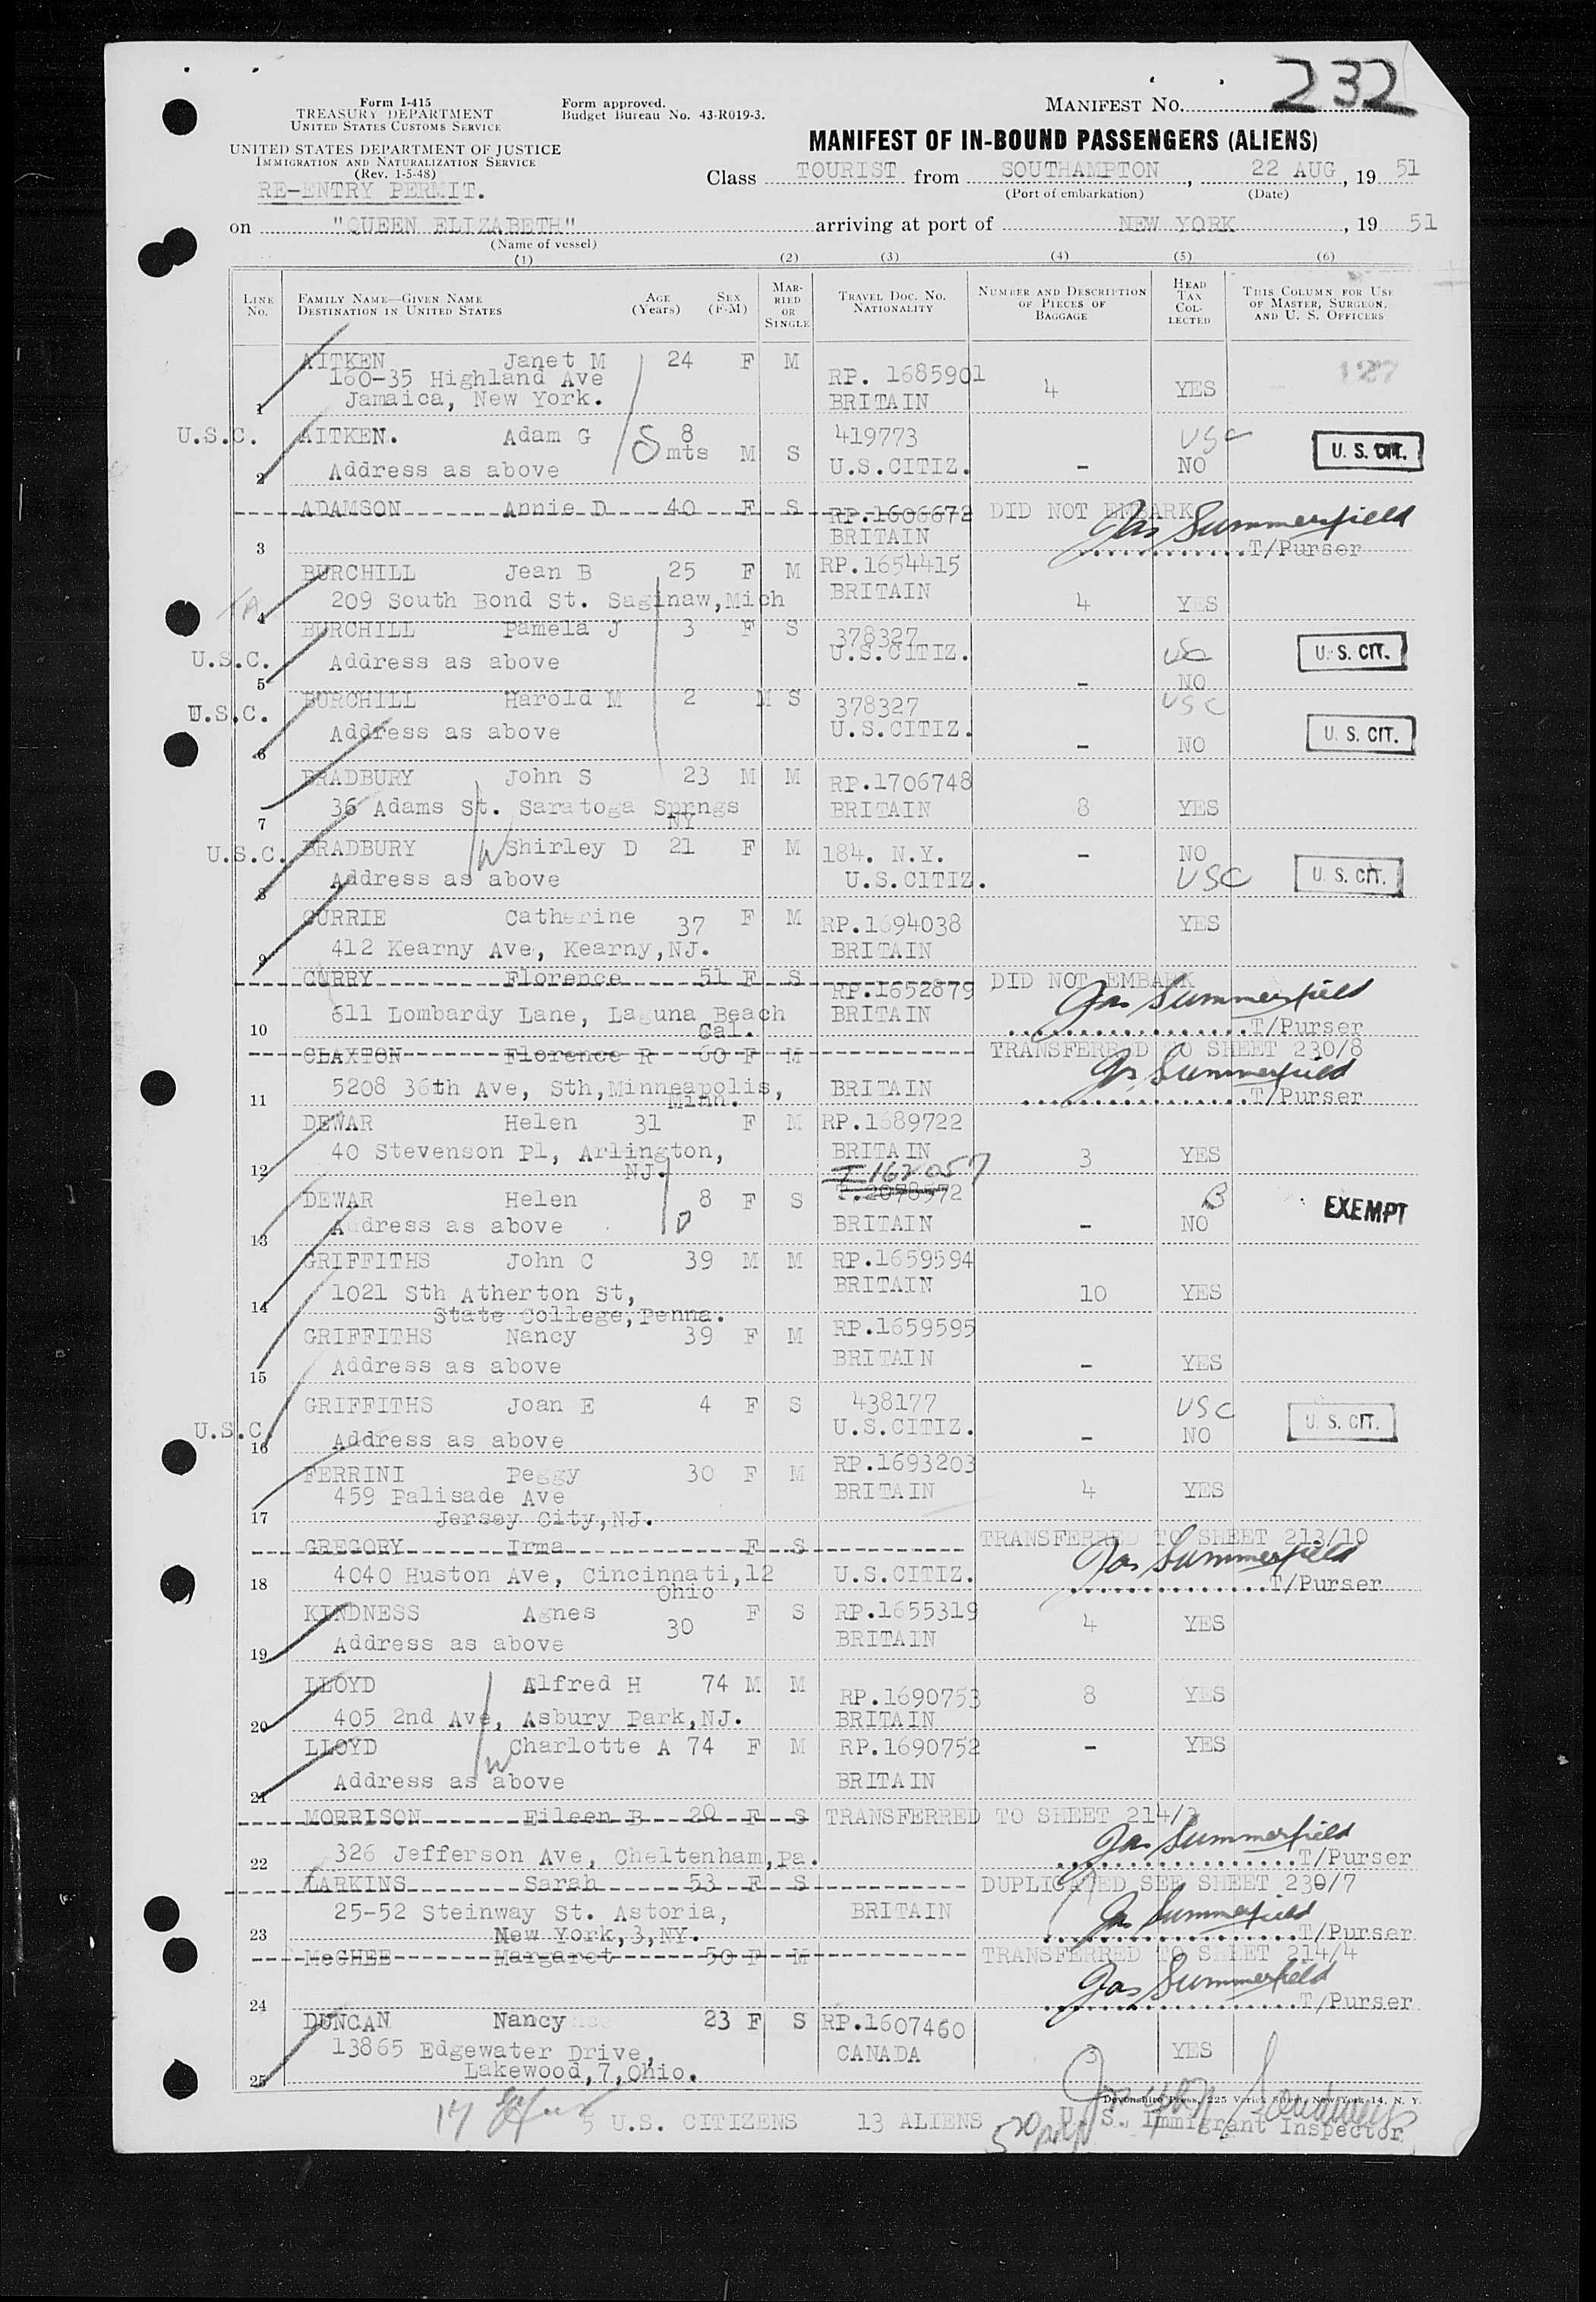 232
Form I-415
TREASURY DEPARTMENT
UNITED STATES CUSTOMS SERVICE
Form approved.
Budget Bureau No. 43-R019-3.
MANIFEST NO.
UNITED STATES DEPARTMENT OF JUSTICE
IMMIGRATION AND NATURALIZATION SERVICE
(Rev. 1-5-48)
RE-ENTRY PERMIT.
MANIFEST OF IN-BOUND PASSENGERS (ALIENS)
Class TOURIST from SOUTHAMPTON, 22 AUG, 19 51
(Port of embarkation) (Date)
on "QUEEN ELIZABETH" arriving at port of NEW YORK, 19 51
(Name of vessel)
(1) (2) (3) (4) (5) (6)
LINE No. FAMILY NAME—GIVEN NAME DESTINATION IN UNITED STATES AGE (Years) SEX (F-M) MARRIED OR SINGLE TRAVEL DOC. NO. NATIONALITY NUMBER AND DESCRIPTION OF PIECES OF BAGGAGE HEAD TAX COLLECTED THIS COLUMN FOR USE OF MASTER, SURGEON, AND U. S. OFFICERS
AITKEN Janet M 24 F M RP. 1685901 127
160-35 Highland Ave 4 YES
1 Jamaica, New York. BRITAIN
U.S.C. AITKEN. Adam G 8 mts M S 419773 USC U. S. CIT.
2 Address as above U.S.CITIZ. - NO
ADAMSON Annie D 40 F S RP.1606672 DID NOT EMBARK
BRITAIN Jas Summerfield
3 T/Purser
BURCHILL Jean B 25 F M RP.1654415
4 209 South Bond St. Saginaw,Mich BRITAIN 4 YES
BURCHILL Pamela J 3 F S 378327
U.S.C. Address as above U.S.CITIZ. USC U. S. CIT.
5 - NO
U.S.C. BURCHILL Harold M 2 M S 378327 USC
6 Address as above U.S.CITIZ. - NO U. S. CIT.
BRADBURY John S 23 M M RP.1706748
7 36 Adams St. Saratoga Sprngs NY BRITAIN 8 YES
U.S.C. BRADBURY W Shirley D 21 F M 184. N.Y. - NO
8 Address as above U.S.CITIZ. USC U. S. CIT.
CURRIE Catherine 37 F M RP.1694038 YES
9 412 Kearny Ave, Kearny,NJ. BRITAIN
CURRY Florence 51 F S RP.1652879 DID NOT EMBARK
611 Lombardy Lane, Laguna Beach BRITAIN Jas Summerfield
10 Cal. T/Purser
CLAXTON Florence R 60 F M TRANSFERRED TO SHEET 230/8
5208 36th Ave, Sth,Minneapolis, BRITAIN Jas Summerfield
11 Minn. T/Purser
DEWAR Helen 31 F M RP.1689722
12 40 Stevenson Pl, Arlington, BRITAIN 3 YES
NJ. I 162057
DEWAR Helen 8 F S EXEMPT
13 Address as above BRITAIN - NO
GRIFFITHS John C 39 M M RP.1659594
14 1021 Sth Atherton St, BRITAIN 10 YES
State College,Penna.
GRIFFITHS Nancy 39 F M RP.1659595
15 Address as above BRITAIN - YES
GRIFFITHS Joan E 4 F S 438177 USC
U.S.C. 16 Address as above U.S.CITIZ. - NO U. S. CIT.
FERRINI Peggy 30 F M RP.1693203
459 Palisade Ave BRITAIN 4 YES
17 Jersey City,NJ.
GREGORY Irma F S TRANSFERRED TO SHEET 213/10
4040 Huston Ave, Cincinnati,12 U.S.CITIZ. Jas Summerfield
18 Ohio T/Purser
KINDNESS Agnes 30 F S RP.1655319 4 YES
19 Address as above BRITAIN
LLOYD Alfred H 74 M M RP.1690753 8 YES
20 405 2nd Ave, Asbury Park,NJ. BRITAIN
LLOYD W Charlotte A 74 F M RP.1690752 - YES
21 Address as above BRITAIN
MORRISON Eileen B 20 F S TRANSFERRED TO SHEET 214/3
Jas Summerfield
22 326 Jefferson Ave, Cheltenham,Pa. T/Purser
LARKINS Sarah 53 F S DUPLICATED SEE SHEET 230/7
25-52 Steinway St. Astoria, BRITAIN Jas Summerfield
23 New York,3,NY. T/Purser
McGHEE Margaret 50 F M TRANSFERRED TO SHEET 214/4
Jas Summerfield
24 T/Purser
DUNCAN Nancy 23 F S RP.1607460
13865 Edgewater Drive, CANADA 3 YES
25 Lakewood,7,Ohio.
Devonshire Press, 225 Varick Street, New York 14, N. Y.
17 5 U.S. CITIZENS 13 ALIENS U. S. Immigrant Inspector